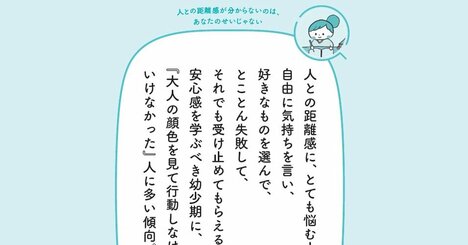 人との距離感が分からないのは、
あなたのせいじゃない
人との距離感に、とても悩む
自由に気持ちを言い、
好きなものを選んで、
とことん失敗して、
それでも受け止めてもらえる
安心感を学ぶべき幼少期に、
『大人の顔色を見て行動しなけ
いけなかった』人に多い傾向